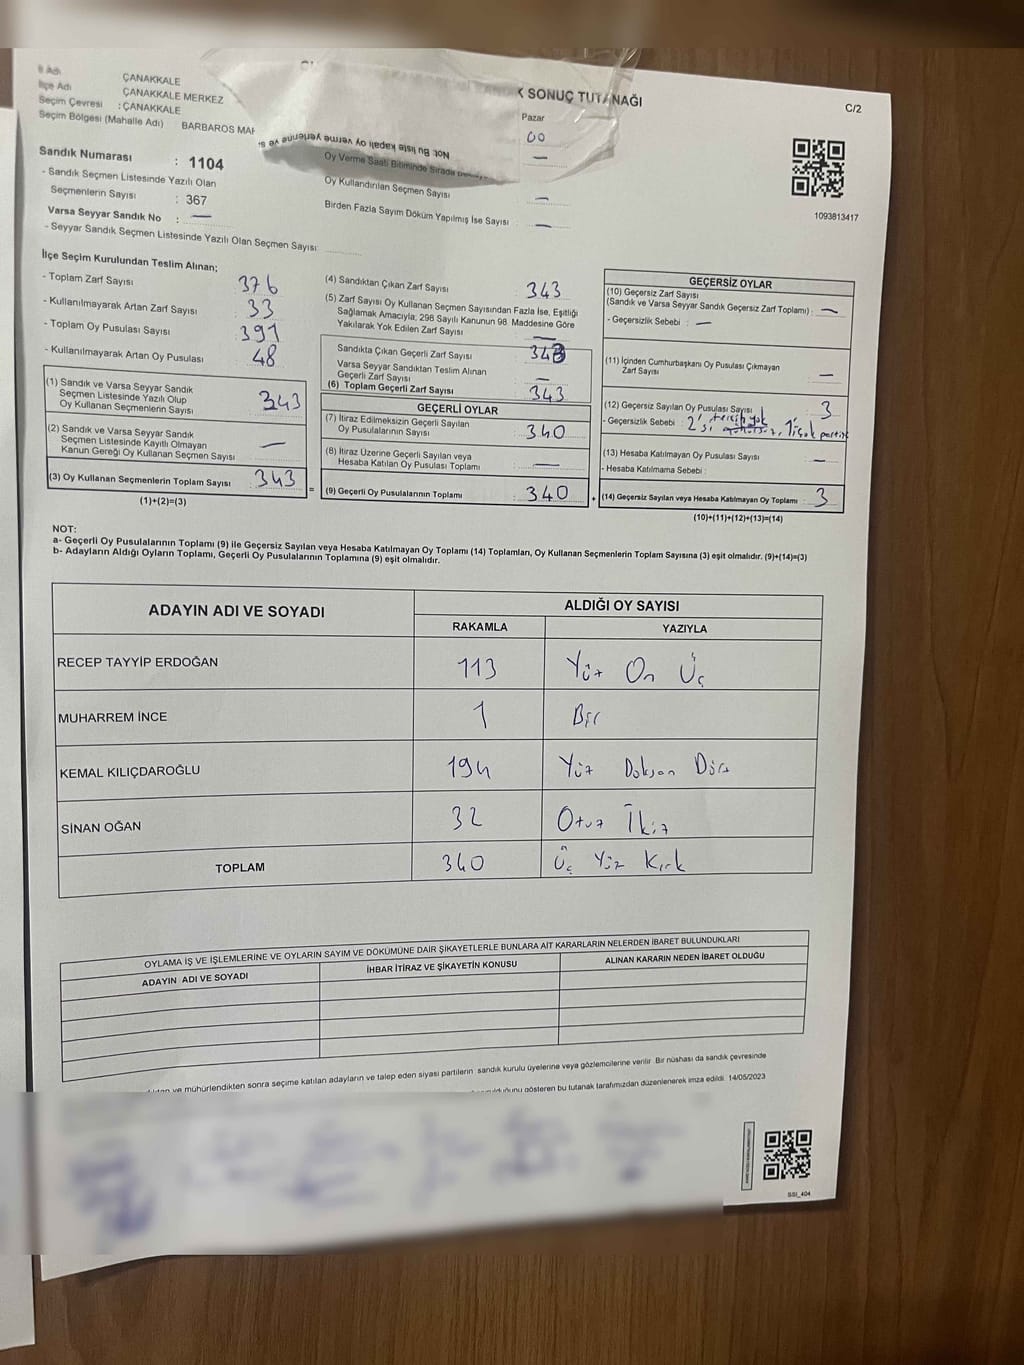 K SONUÇ TUTANAĞI
C/2
İl Adı
ÇANAKKALE
İlçe Adı
ÇANAKKALE MERKEZ
Seçim Çevresi : ÇANAKKALE
Seçim Bölgesi (Mahalle Adı) BARBAROS MAH
Pazar
00
Not: Bu liste kapalı oy verme yerlerine ve s
Oy Verme Saati Bitiminde Sırada —
Oy Kullandırılan Seçmen Sayısı —
Birden Fazla Sayım Döküm Yapılmış İse Sayısı : —
1093813417
Sandık Numarası : 1104
- Sandık Seçmen Listesinde Yazılı Olan
Seçmenlerin Sayısı : 367
Varsa Seyyar Sandık No : —
- Seyyar Sandık Seçmen Listesinde Yazılı Olan Seçmen Sayısı:
İlçe Seçim Kurulundan Teslim Alınan;
- Toplam Zarf Sayısı 376
- Kullanılmayarak Artan Zarf Sayısı : 33
- Toplam Oy Pusulası Sayısı : 391
- Kullanılmayarak Artan Oy Pusulası 48
(1) Sandık ve Varsa Seyyar Sandık
Seçmen Listesinde Yazılı Olup
Oy Kullanan Seçmenlerin Sayısı : 343
(2) Sandık ve Varsa Seyyar Sandık
Seçmen Listesinde Kayıtlı Olmayan
Kanun Gereği Oy Kullanan Seçmen Sayısı —
(3) Oy Kullanan Seçmenlerin Toplam Sayısı : 343
(1)+(2)=(3)
=
(4) Sandıktan Çıkan Zarf Sayısı : 343
(5) Zarf Sayısı Oy Kullanan Seçmen Sayısından Fazla İse, Eşitliği
Sağlamak Amacıyla, 298 Sayılı Kanunun 98. Maddesine Göre
Yakılarak Yok Edilen Zarf Sayısı —
Sandıkta Çıkan Geçerli Zarf Sayısı : 343
Varsa Seyyar Sandıktan Teslim Alınan
Geçerli Zarf Sayısı : —
(6) Toplam Geçerli Zarf Sayısı : 343
GEÇERLİ OYLAR
(7) İtiraz Edilmeksizin Geçerli Sayılan
Oy Pusulalarının Sayısı : 340
(8) İtiraz Üzerine Geçerli Sayılan veya
Hesaba Katılan Oy Pusulası Toplamı : —
(9) Geçerli Oy Pusulalarının Toplamı : 340
+
GEÇERSİZ OYLAR
(10) Geçersiz Zarf Sayısı
(Sandık ve Varsa Seyyar Sandık Geçersiz Zarf Toplamı) : —
- Geçersizlik Sebebi : —
(11) İçinden Cumhurbaşkanı Oy Pusulası Çıkmayan
Zarf Sayısı : —
(12) Geçersiz Sayılan Oy Pusulası Sayısı : 3
- Geçersizlik Sebebi : 2'si tercih yok
(13) Hesaba Katılmayan Oy Pusulası Sayısı : —
- Hesaba Katılmama Sebebi :
(14) Geçersiz Sayılan veya Hesaba Katılmayan Oy Toplamı : 3
(10)+(11)+(12)+(13)=(14)
NOT:
a- Geçerli Oy Pusulalarının Toplamı (9) ile Geçersiz Sayılan veya Hesaba Katılmayan Oy Toplamı (14) Toplamları, Oy Kullanan Seçmenlerin Toplam Sayısına (3) eşit olmalıdır. (9)+(14)=(3)
b- Adayların Aldığı Oyların Toplamı, Geçerli Oy Pusulalarının Toplamına (9) eşit olmalıdır.
ADAYIN ADI VE SOYADI
ALDIĞI OY SAYISI
RAKAMLA YAZIYLA
RECEP TAYYİP ERDOĞAN 113 Yüz On Üç
MUHARREM İNCE 1 Bir
KEMAL KILIÇDAROĞLU 194 Yüz Doksan Dört
SİNAN OĞAN 32 Otuz İkiz
TOPLAM 340 Üç Yüz Kırk
OYLAMA İŞ VE İŞLEMLERİNE VE OYLARIN SAYIM VE DÖKÜMÜNE DAİR ŞİKAYETLERLE BUNLARA AİT KARARLARIN NELERDEN İBARET BULUNDUKLARI
ADAYIN ADI VE SOYADI İHBAR İTİRAZ VE ŞİKAYETİN KONUSU ALINAN KARARIN NEDEN İBARET OLDUĞU
ve mühürlendikten sonra seçime katılan adayların ve talep eden siyasi partilerin sandık kurulu üyelerine veya gözlemcilerine verilir. Bir nüshası da sandık çevresinde
gösteren bu tutanak tarafımızdan düzenlenerek imza edildi. 14/05/2023
SSI_404